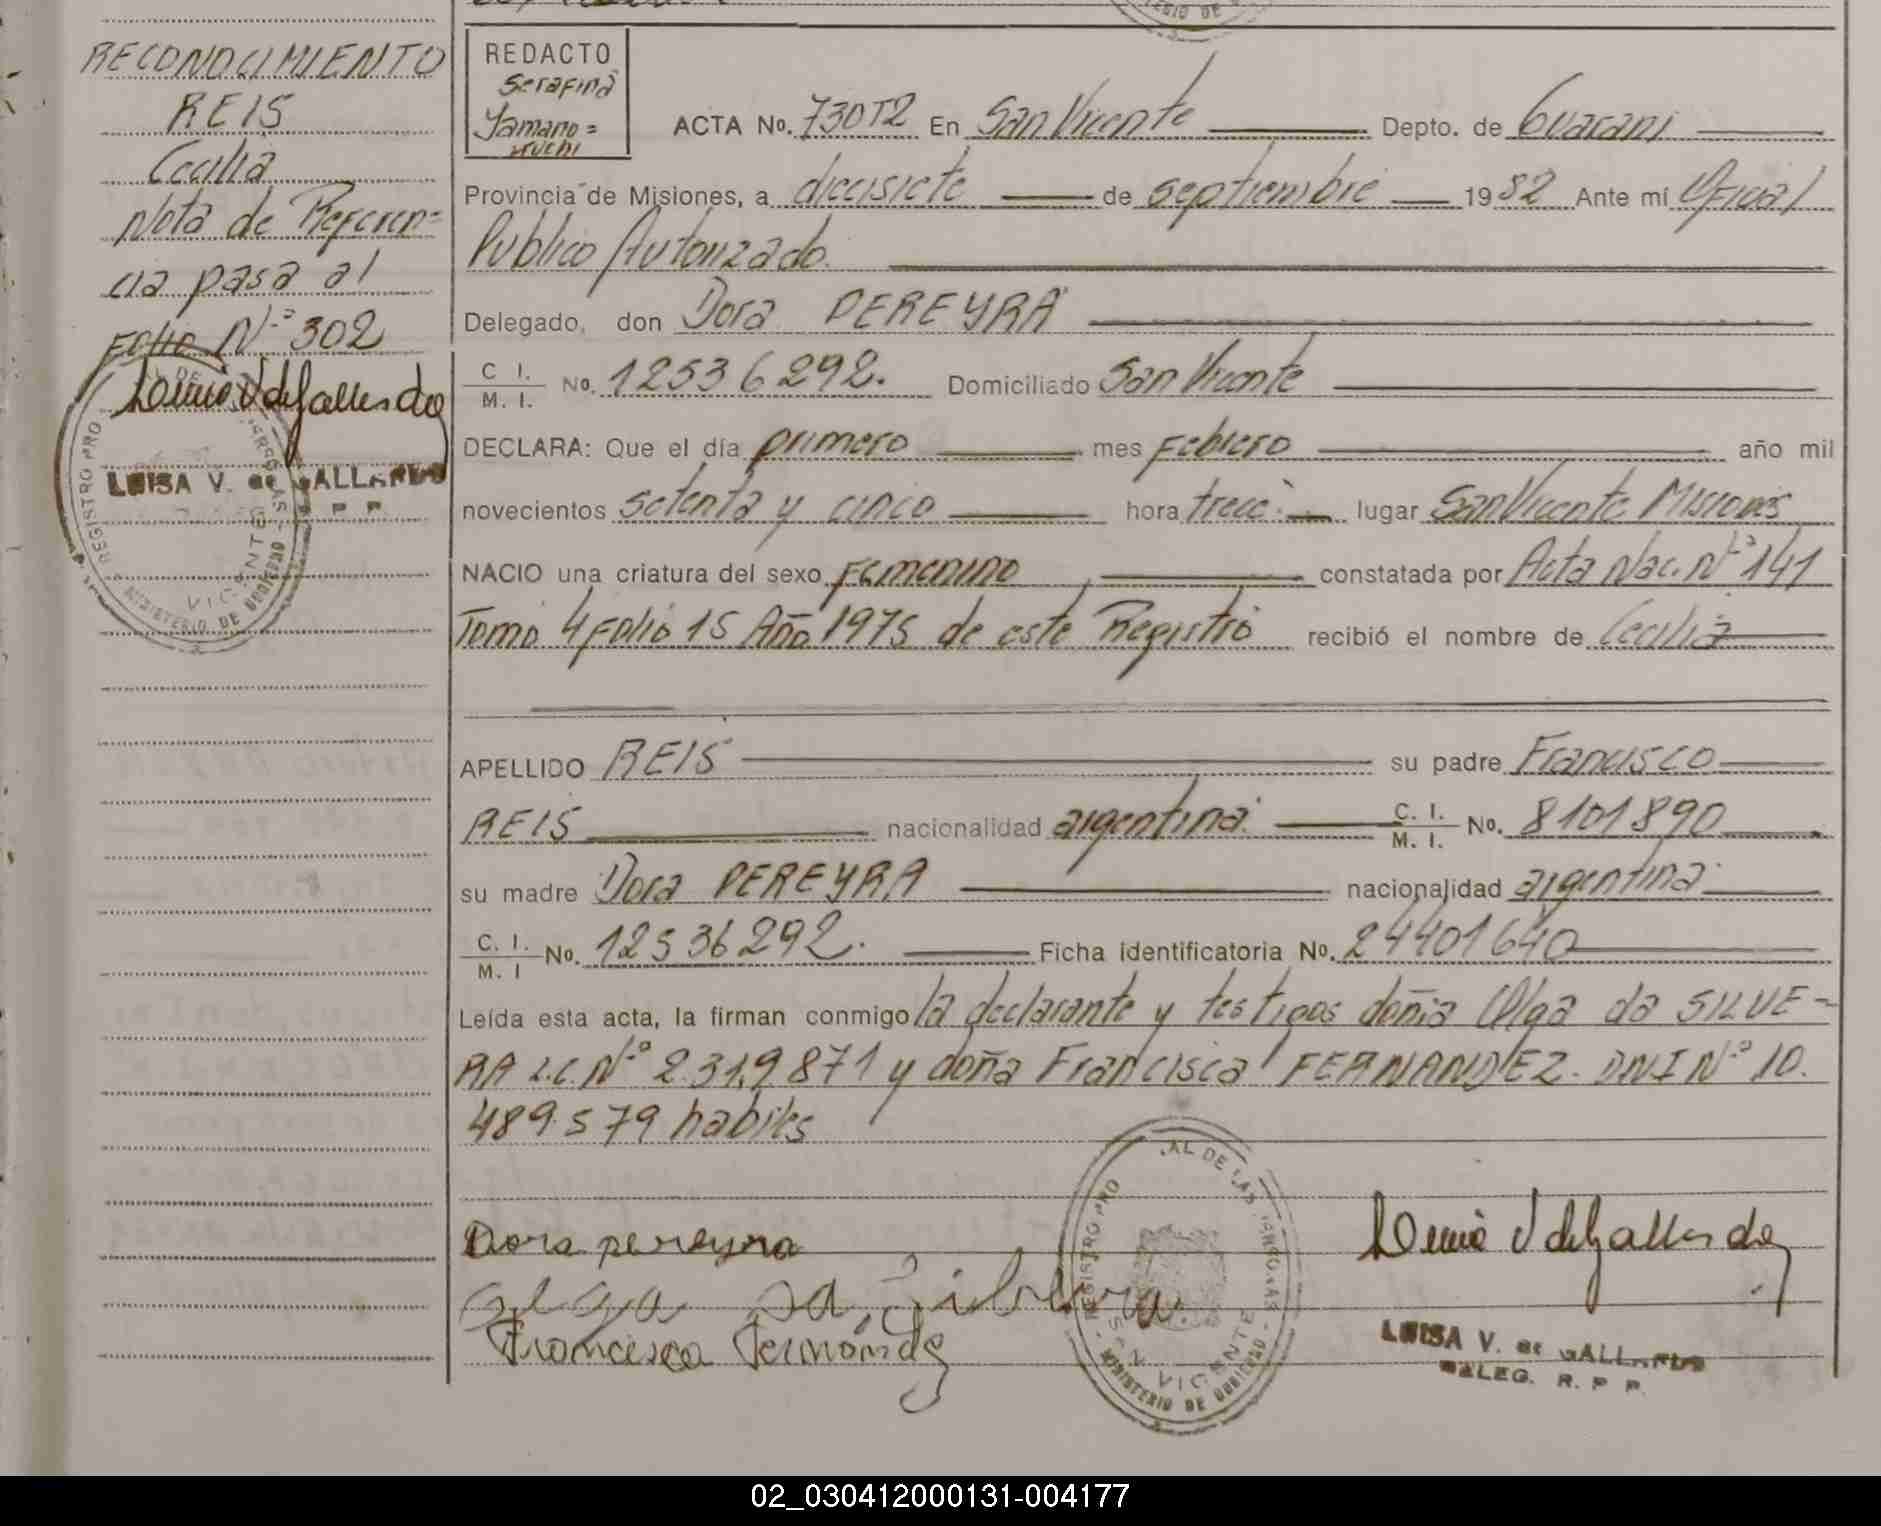 RECONOCIMIENTO
REIS
Cecilia
Nota de Referen=
cia pasa al
Folio N.º 302
LUISA V. de GALLARDO
REDACTO
Serafina
Yamano=
uchi
ACTA No. 730T2 En San Vicente Depto. de Guarani
Provincia de Misiones, a diecisiete de septiembre 1982 Ante mí Oficial
Publico Autorizado.
Delegado, don Dora PEREYRA
C I. / M. I. No. 12536292. Domiciliado San Vicente
DECLARA: Que el día primero mes Febrero año mil
novecientos setenta y cinco hora trece. lugar San Vicente Misiones
NACIO una criatura del sexo Femenino, constatada por Acta Nac. N.º 141
Tomo 4 Folio 15 Año 1975 de este Registro recibió el nombre de Cecilia
APELLIDO REIS su padre Francisco
REIS nacionalidad argentina C. I. / M. I. No. 8101890
su madre Dora PEREYRA nacionalidad argentina
C. I. / M. I No. 12536292. Ficha identificatoria No. 24401640
Leída esta acta, la firman conmigo la declarante y testigos doña Olga da SILVE-
RA L.C. N.º 2.319.871 y doña Francisca FERNANDEZ. DNI N.º 10.
489.579 habiles
Dora pereyra
olga da Silveira
Francisca Fernández
REGISTRO PRO AL DE LAS PERSONAS
SAN VICENTE
MINISTERIO DE GOBIERNO
LUISA V. de GALLARDO
DELEG. R. P P.
02_030412000131-004177